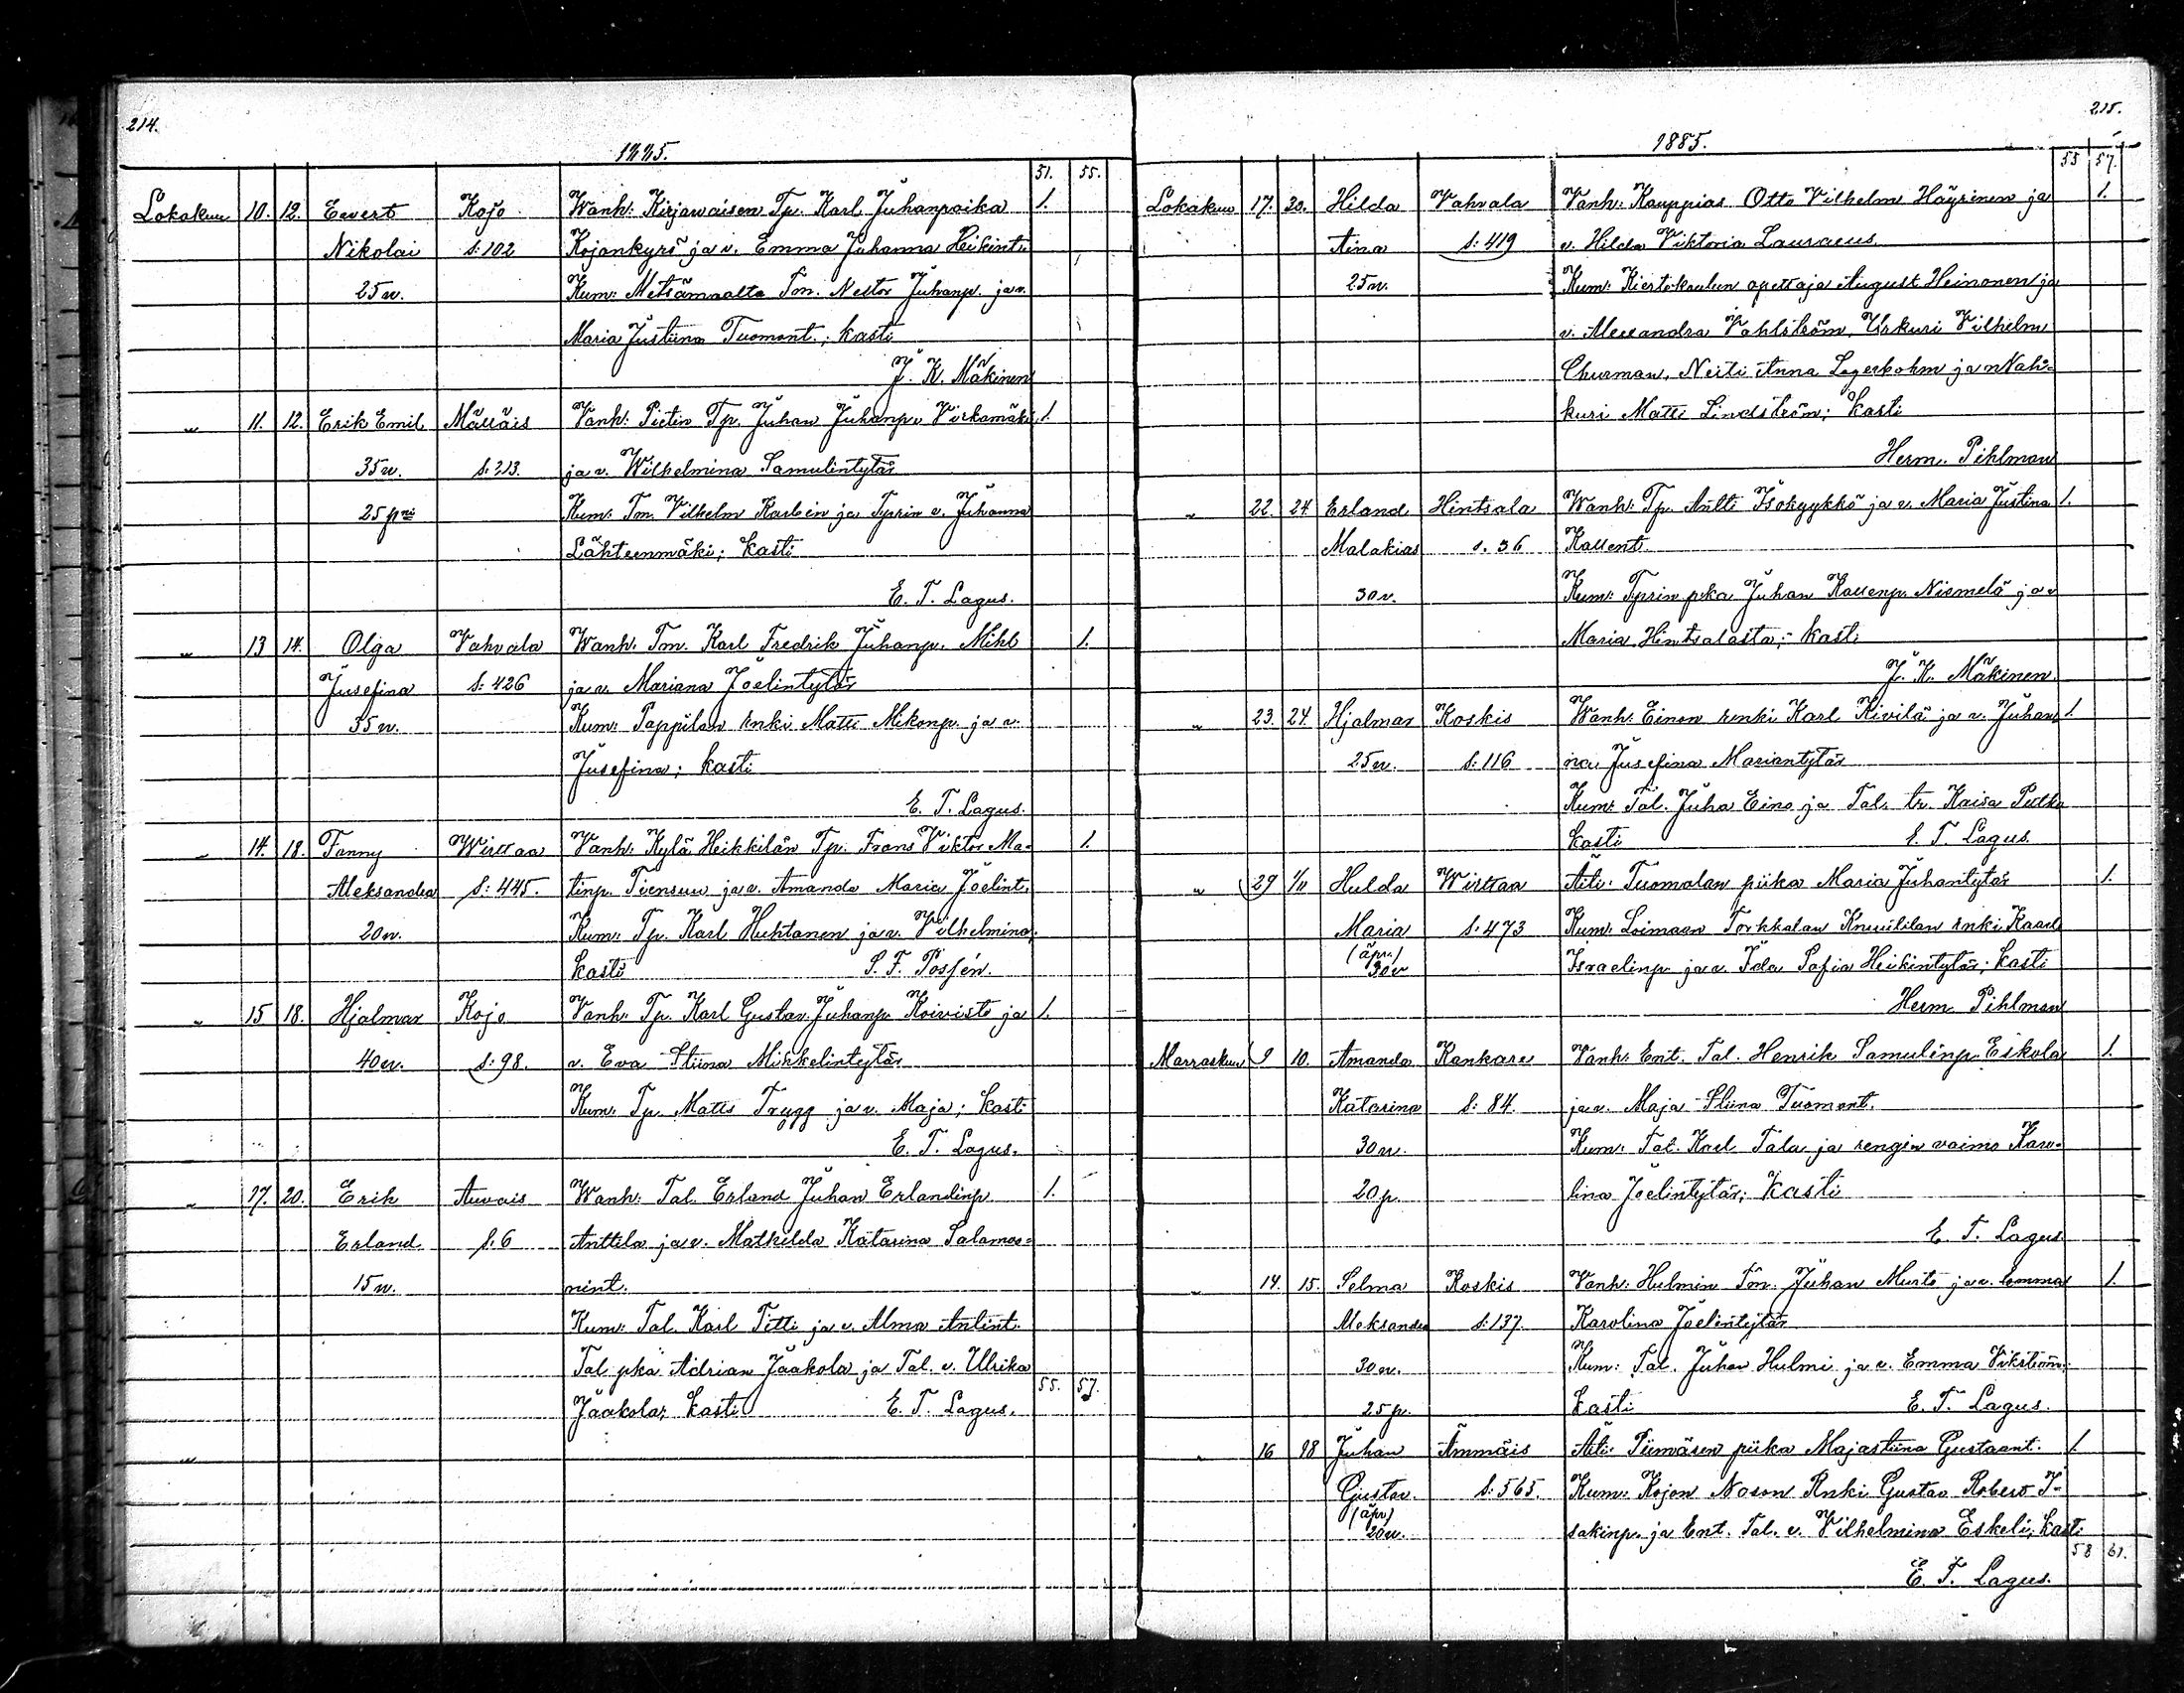 214.
1885.
51. 55.
Lokakuu 10. 12. Eevert Kojo Wanh: Kirjawaisen Tp. Karl Juhanpoika 1.
Nikolai S: 102 Kojankyrö ja v. Emma Juhanna Heikint.
25 v. Kum: Metsämaalta Tm. Nestor Juhanp. ja v.
Maria Justiina Tuomant.; kasti
J. K. Mäkinen
" 11. 12. Erik Emil Mälläis Vanh: Pietin Tp. Juhan Juhanp. Virkamäki 1.
35 v. S. 213. ja v. Wilhelmina Samulintytär
25 p Kum: Tm. Vilhelm Karlein ja Tprin v. Juhanna
Lähteenmäki; kasti
E. T. Lagus.
" 13 14. Olga Vahvala Wanh: Tm. Karl Fredrik Juhanp. Mihl 1.
Jusefina S: 426 ja v. Mariana Joelintytär
35 v. Kum: Pappilan renki Matti Mikonp. ja v.
Jusefina; kasti
E. T. Lagus.
" 14. 18. Fanny Wirttaa Vanh: Kylä Heikkilän Tp. Frans Viktor Ma- 1.
Aleksandra S: 445. tinp. Tiensuu ja v. Amanda Maria Joelint.
20 v. Kum: Tp. Karl Huhtanen ja v. Vilhelmina;
kasti S. F. Possén.
" 15 18. Hjalmar Kojo Vanh: Tp. Karl Gustav Juhanp. Koivisto ja 1.
40 v. S: 98. v. Eva Stiina Mikkelintytär
Kum: Tp. Matts Trygg ja v. Maja; kasti
E. T. Lagus.
" 17. 20. Erik Auvais Wanh: Tal. Erland Juhan Erlandinp. 1.
Erland S. 6 Anttila ja v. Mathilda Katarina Salamo-
15 v. nint.
Kum: Tal. Karl Titti ja v. Alma Antint.
Tal. pka Adrian Jaakola ja Tal. v. Ulrika
55. 57.
Jaakola; kasti E. T. Lagus.
"
215.
1885.
55 57.
Lokakuu 17. 20. Hilda Vahvala Vanh: Kauppias Otto Vilhelm Häyrinen ja 1.
Aina S: 419 v. Hilda Viktoria Lauraeus.
25 v. Kum: Kiertokoulun opettaja August Heinonen ja
v. Alexandra Vahlström, Urkuri Vilhelm
Churman, Neiti Anna Lagerbohm ja Nah-
kuri Matti Lindström; kasti
Herm. Pihlman
" 22. 24. Erland Hintsala Wanh: Tp. Antti Isokyykkö ja v. Maria Justina 1.
Malakias S. 36 Kallent.
30 v. Kum: Tprin pka Juhan Kallenp. Niemelä ja v.
Maria Hintsalasta; kasti
J. K. Mäkinen
" 23. 24. Hjalmar Koskis Wanh: Einon renki Karl Kivilä ja v. Juhan- 1.
25 v. S: 116 na Jusefina Mariantytär
Kum: Tal. Juha Eino ja Tal. tr. Kaisa Putka
kasti E. T. Lagus.
" 29 1/11 Hulda Wirttaa Äiti: Tuomolan piika Maria Juhantytär 1.
Maria S. 473 Kum: Loimaan Torkkalan renki Kaarl
(äpr.)
30 v Israelinp. ja v. Ida Sofia Heikintytär; kasti
Herm. Pihlman
Marraskuu 9 10. Amanda Kankare Vanh: Ent. Tal. Henrik Samulinp. Eskola 1.
Katarina S: 84. ja v. Maja Stiina Tuomant.
30 v. Kum: Tal. Karl Tala ja rengin vaimo Karo-
20 p. lina Joelintytär; kasti
E. T. Lagus
" 14. 15. Selma Koskis Vanh: Hulmin Tm. Juhan Murto ja v. Emma 1.
Aleksandra S: 137. Karolina Joelintytär
30 v. Kum: Tal. Juhan Hulmi ja v. Emma Vikström;
25 p. kasti E. T. Lagus.
" 16 18 Juhan Ämmäis Äiti: Piimäsen piika Majastiina Gustaant. 1.
Gustav. S: 565. Kum: Kojon Noson Renki Gustav Robert I-
(äpr.)
20 v. sakinp. ja Ent. Tal. v. Vilhelmina Eskeli; kasti
58 61.
E. T. Lagus.